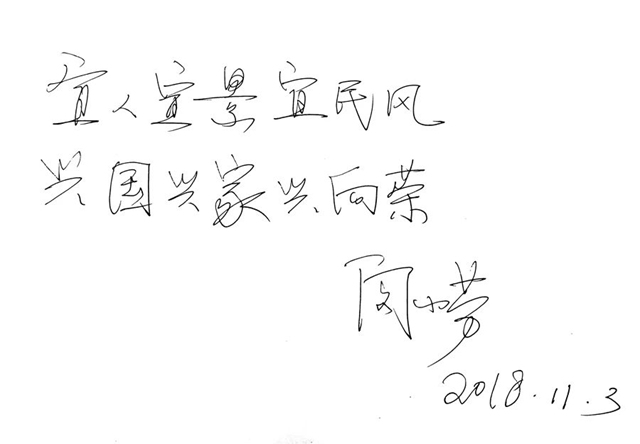 宜人宜景宜民风
兴国兴家兴向荣
2018.11.3